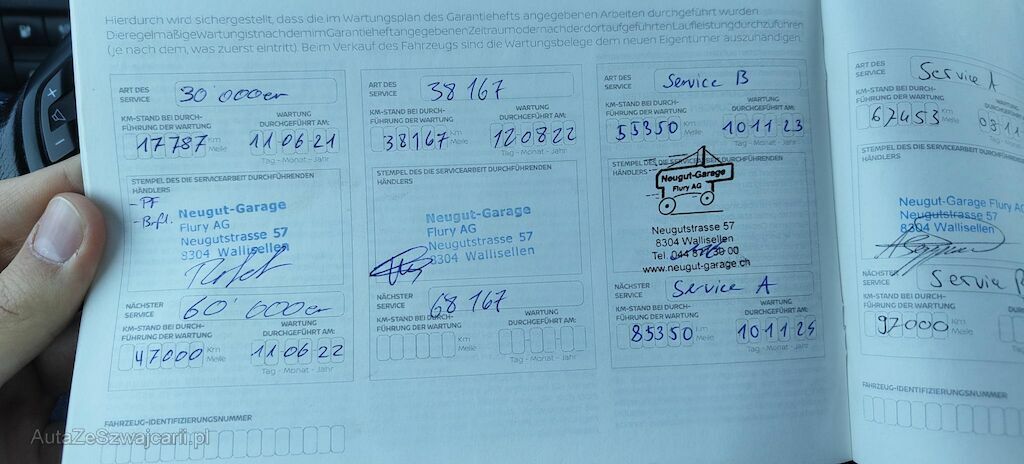 Hierdurch wird sichergestellt, dass die im Wartungsplan des Garantiehefts angegebenen Arbeiten durchgeführt wurden
Die regelmäßige Wartung ist nach dem im Garantieheft angegebenen Zeitraum oder nach der dort aufgeführten Laufleistung durchzuführen
(je nach dem, was zuerst eintritt). Beim Verkauf des Fahrzeugs sind die Wartungsbelege dem neuen Eigentümer auszuhändigen.
ART DES
SERVICE
30'000er
KM-STAND BEI DURCH-
FÜHRUNG DER WARTUNG
WARTUNG
DURCHGEFÜHRT AM:
17787
Km
Meile
11 06 21
Tag - Monat - Jahr
STEMPEL DES DIE SERVICEARBEIT DURCHFÜHRENDEN
HÄNDLERS
- PF
Neugut-Garage
Flury AG
Neugutstrasse 57
8304 Wallisellen
NÄCHSTER
SERVICE
60'000er
KM-STAND BEI DURCH-
FÜHRUNG DER WARTUNG
WARTUNG
DURCHGEFÜHRT AM:
47000
Km
Meile
11 06 22
Tag - Monat - Jahr
FAHRZEUG-IDENTIFIZIERUNGSNUMMER
ART DES
SERVICE
38 167
KM-STAND BEI DURCH-
FÜHRUNG DER WARTUNG
WARTUNG
DURCHGEFÜHRT AM:
38167
Km
Meile
12 08 22
Tag - Monat - Jahr
STEMPEL DES DIE SERVICEARBEIT DURCHFÜHRENDEN
HÄNDLERS
Neugut-Garage
Flury AG
Neugutstrasse 57
8304 Wallisellen
NÄCHSTER
SERVICE
68 167
KM-STAND BEI DURCH-
FÜHRUNG DER WARTUNG
WARTUNG
DURCHGEFÜHRT AM:
Km
Meile
Tag - Monat - Jahr
ART DES
SERVICE
Service B
KM-STAND BEI DURCH-
FÜHRUNG DER WARTUNG
WARTUNG
DURCHGEFÜHRT AM:
55350
Km
Meile
10 11 23
Tag - Monat - Jahr
STEMPEL DES DIE SERVICEARBEIT DURCHFÜHRENDEN
HÄNDLERS
Neugut-Garage
Flury AG
Neugutstrasse 57
8304 Wallisellen
Tel. 044 00
www.neugut-garage.ch
NÄCHSTER
SERVICE
Service A
KM-STAND BEI DURCH-
FÜHRUNG DER WARTUNG
WARTUNG
DURCHGEFÜHRT AM:
85350
Km
Meile
10 11 25
Tag - Monat - Jahr
FAHRZEUG-IDENTIFIZIERUNGSNUMMER
ART DES
SERVICE
Service A
KM-STAND BEI DURCH-
FÜHRUNG DER WARTUNG
67453
Km
Meile
STEMPEL DES DIE SERVICEARBEIT
HÄNDLERS
Neugut-Garage Flury AG
Neugutstrasse 57
8304 Wallisellen
NÄCHSTER
SERVICE
Service B
KM-STAND BEI DURCH-
FÜHRUNG DER WARTUNG
97000
Km
Meile
AutaZeSzwajcarii.pl